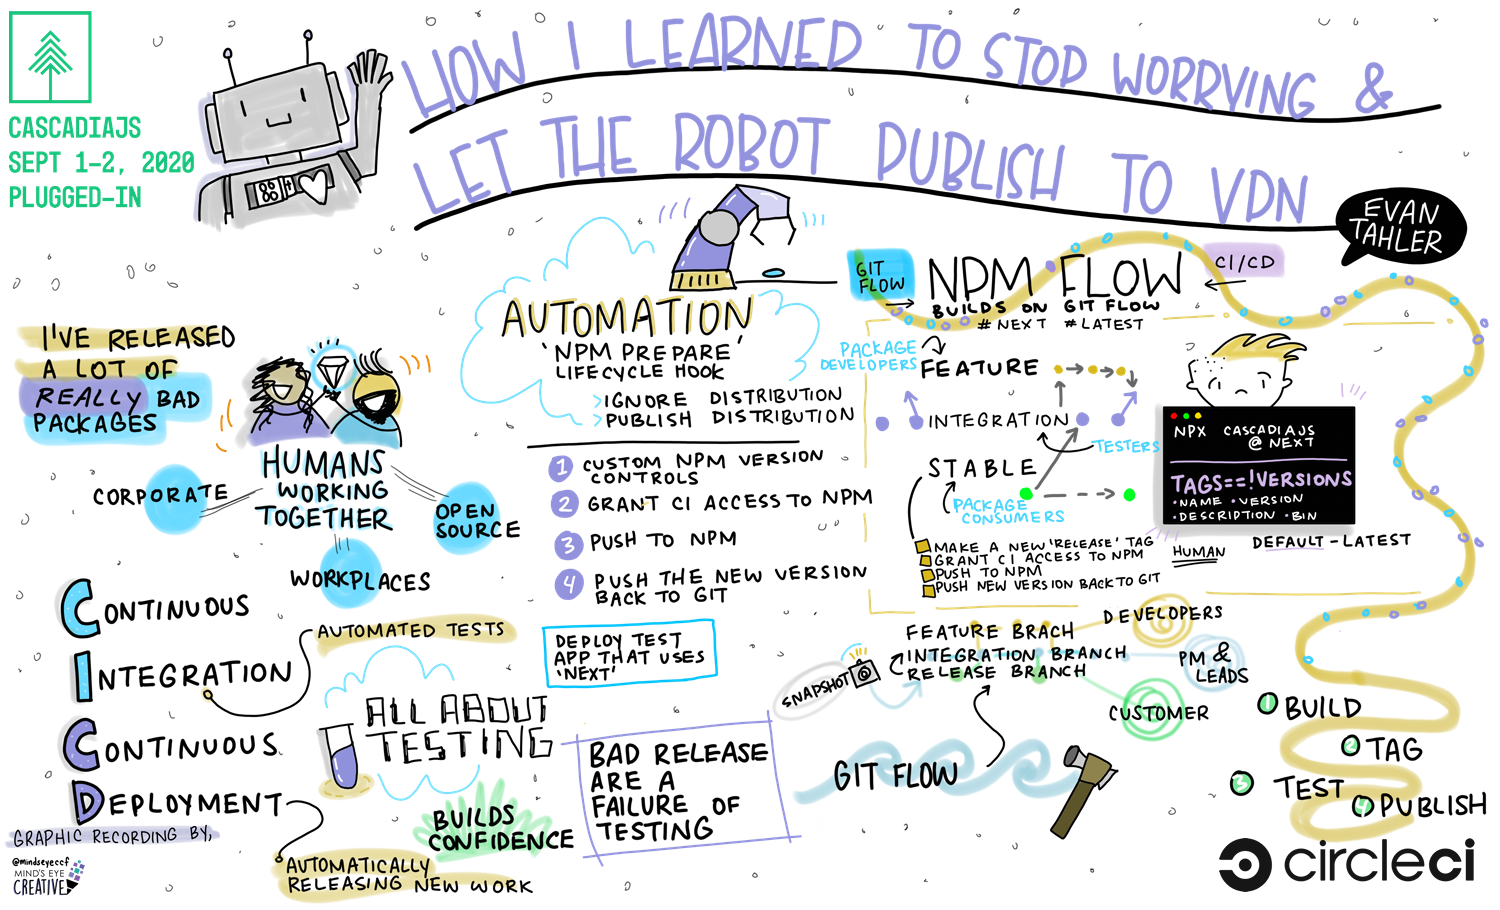 CASCADIAJS
SEPT 1-2, 2020
PLUGGED-IN
HOW I LEARNED TO STOP WORRYING &
LET THE ROBOT PUBLISH TO VDN
EVAN
TAHLER
I'VE RELEASED
A LOT OF
REALLY BAD
PACKAGES
HUMANS
WORKING
TOGETHER
CORPORATE
OPEN
SOURCE
WORKPLACES
CONTINUOUS
INTEGRATION
CONTINUOUS
DEPLOYMENT
AUTOMATED TESTS
AUTOMATICALLY
RELEASING NEW WORK
ALL ABOUT
TESTING
BUILDS
CONFIDENCE
GRAPHIC RECORDING BY,
@mindseyeccf
MIND'S EYE
CREATIVE
AUTOMATION
'NPM PREPARE'
LIFECYCLE HOOK
>IGNORE DISTRIBUTION
>PUBLISH DISTRIBUTION
1 CUSTOM NPM VERSION
CONTROLS
2 GRANT CI ACCESS TO NPM
3 PUSH TO NPM
4 PUSH THE NEW VERSION
BACK TO GIT
DEPLOY TEST
APP THAT USES
'NEXT'
BAD RELEASE
ARE A
FAILURE OF
TESTING
GIT
FLOW
NPM FLOW
CI/CD
BUILDS ON GIT FLOW
#NEXT #LATEST
PACKAGE
DEVELOPERS
FEATURE
INTEGRATION
TESTERS
STABLE
PACKAGE
CONSUMERS
MAKE A NEW 'RELEASE' TAG
GRANT CI ACCESS TO NPM
PUSH TO NPM
PUSH NEW VERSION BACK TO GIT
NPX CASCADIAJS
@NEXT
TAGS==!VERSIONS
•NAME •VERSION
•DESCRIPTION •BIN
HUMAN
DEFAULT-LATEST
FEATURE BRACH
INTEGRATION BRANCH
RELEASE BRANCH
SNAPSHOT
DEVELOPERS
PM &
LEADS
CUSTOMER
GIT FLOW
1 BUILD
2 TAG
3 TEST
4 PUBLISH
circleci